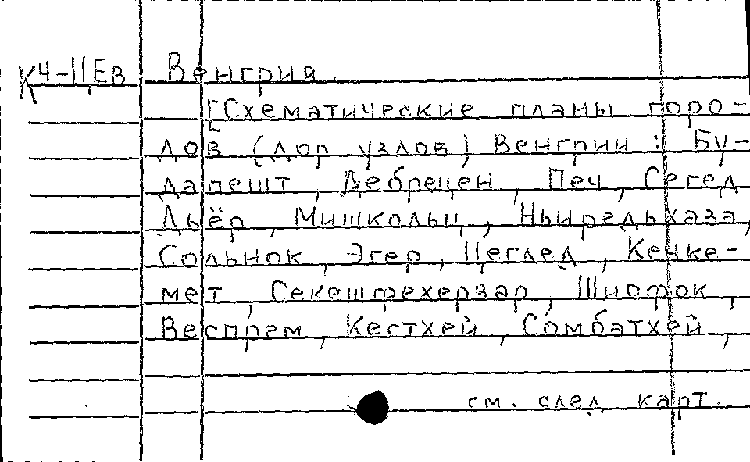 К4-11,Ев Венгрия.
[Схематические планы горо-
дов (дор узлов) Венгрии : Бу-
дапешт, Дебрецен, Печ, Сегед
Дьёр, Мишкольц, Ньиредьхаза,
Сольнок, Эгер, Цеглед, Кечке-
мет, Секешфехервар, Шиофок,
Веспрем, Кестхей, Сомбатхей,
см. след. карт.